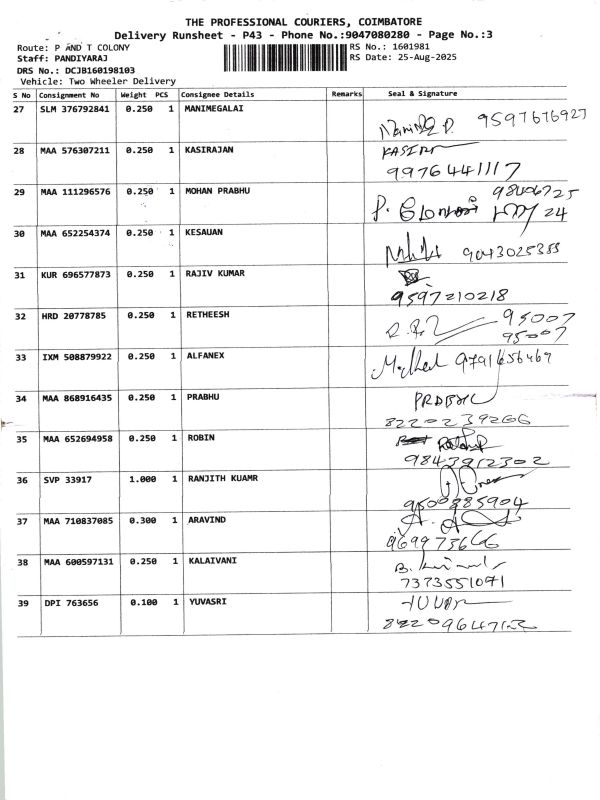 THE PROFESSIONAL COURIERS, COIMBATORE
Delivery Runsheet - P43 - Phone No.:9047080280 - Page No.:3
Route: P AND T COLONY
RS No.: 1601981
Staff: PANDIYARAJ
RS Date: 25-Aug-2025
DRS No.: DCJB160198103
Vehicle: Two Wheeler Delivery
S No Consignment No Weight PCS Consignee Details Remarks Seal & Signature
27 SLM 376792841 0.250 1 MANIMEGALAI
9597676927
28 MAA 576307211 0.250 1 KASIRAJAN
9976441117
29 MAA 111296576 0.250 1 MOHAN PRABHU
24
30 MAA 652254374 0.250 1 KESAUAN
9043025385
31 KUR 696577873 0.250 1 RAJIV KUMAR
9597210218
32 HRD 20778785 0.250 1 RETHEESH
95007
95007
33 IXM 508879922 0.250 1 ALFANEX
9791656469
34 MAA 868916435 0.250 1 PRABHU
8220239266
35 MAA 652694958 0.250 1 ROBIN
9843912302
36 SVP 33917 1.000 1 RANJITH KUAMR
9500385904
37 MAA 710837085 0.300 1 ARAVIND
9699973666
38 MAA 600597131 0.250 1 KALAIVANI
7373551091
39 DPI 763656 0.100 1 YUVASRI